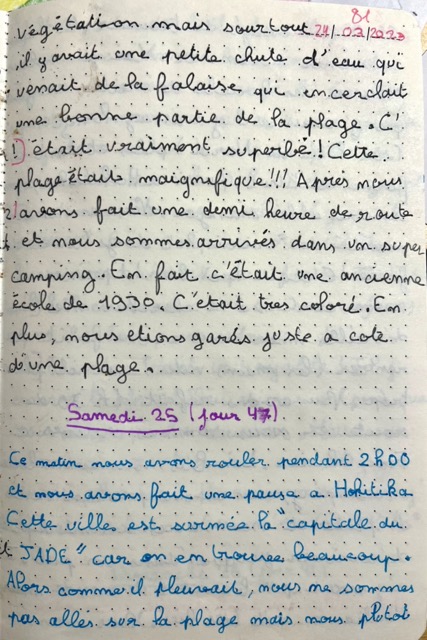 81
végétation mais sourtout 24/02/2023
il y avait une petite chute d'eau qui
venait de la falaise qui encerclait
une bonne partie de la plage. C'
!) était vraiment superbe ! Cette
plage était maignafique !!! Après nous
avons fait une demi heure de route
et nous sommes arrivés dans un super
camping. En fait c'était une ancienne
école de 1930. C'était tres coloré. En
plus, nous étions garés juste a coté
d'une plage.
Samedi 25 (jour 47).
Ce matin nous avons rouler pendant 2h00
et nous avons fait une pausa a Hokitika
Cette villes est surmée la "capitale du
JADE" car on en trouvee beaucoup.
Alors comme il pleuvait, nous ne sommes
pas allés sur la plage mais nous plutot